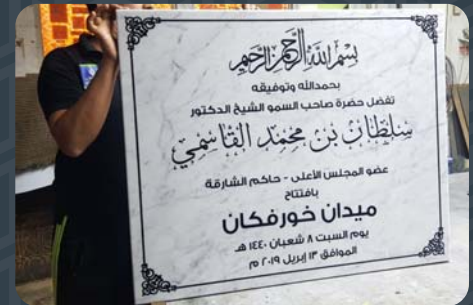 بسم الله الرحمن الرحيم
بحمدالله وتوفيقه
تفضل حضرة صاحب السمو الشيخ الدكتور
سلطان بن محمد القاسمي
عضو المجلس الأعلى - حاكم الشارقة
بافتتاح
ميدان خورفكان
يوم السبت ٨ شعبان ١٤٤٠ هـ
الموافق ١٣ إبريل ٢٠١٩ م